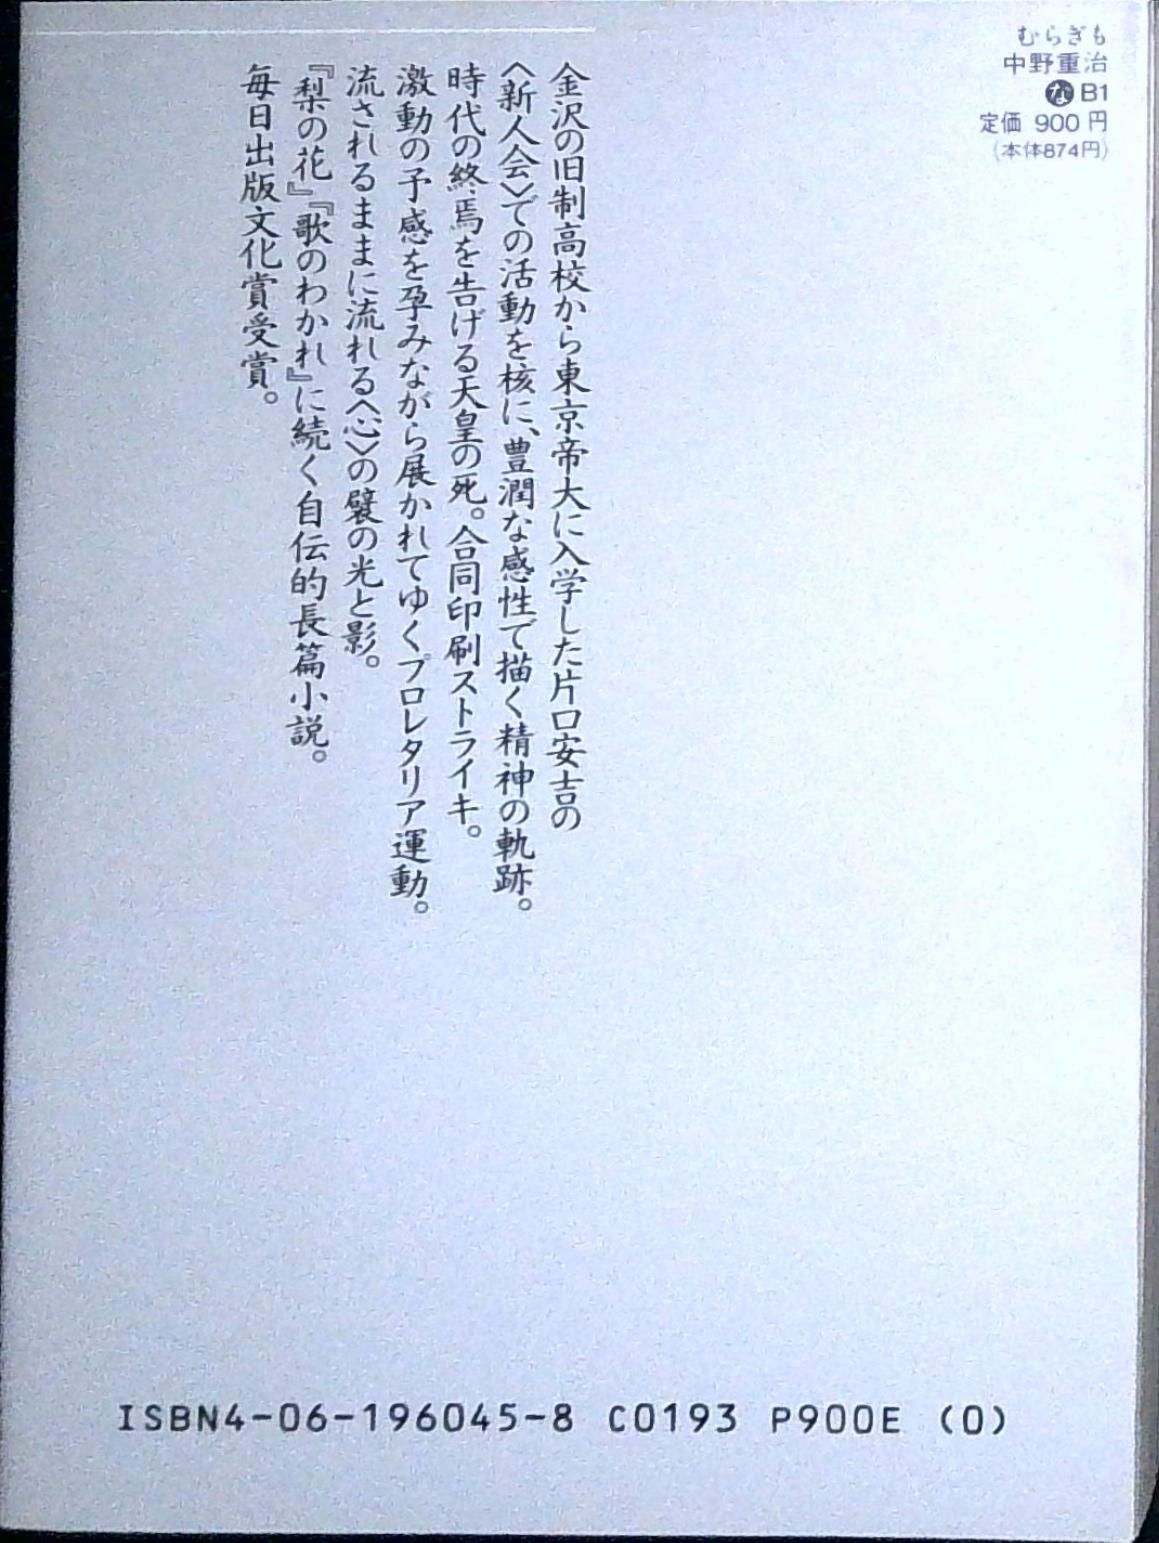 むらぎも
中野重治
なB1
定価 900 円
(本体874円)
金沢の旧制高校から東京帝大に入学した片口安吉の
〈新人会〉での活動を核に、豊潤な感性で描く精神の軌跡。
時代の終焉を告げる天皇の死。合同印刷ストライキ。
激動の予感を孕みながら展かれてゆくプロレタリア運動。
流されるままに流れる〈心〉の襞の光と影。
『梨の花』『歌のわかれ』に続く自伝的長篇小説。
毎日出版文化賞受賞。
ISBN4-06-196045-8 C0193 P900E (0)